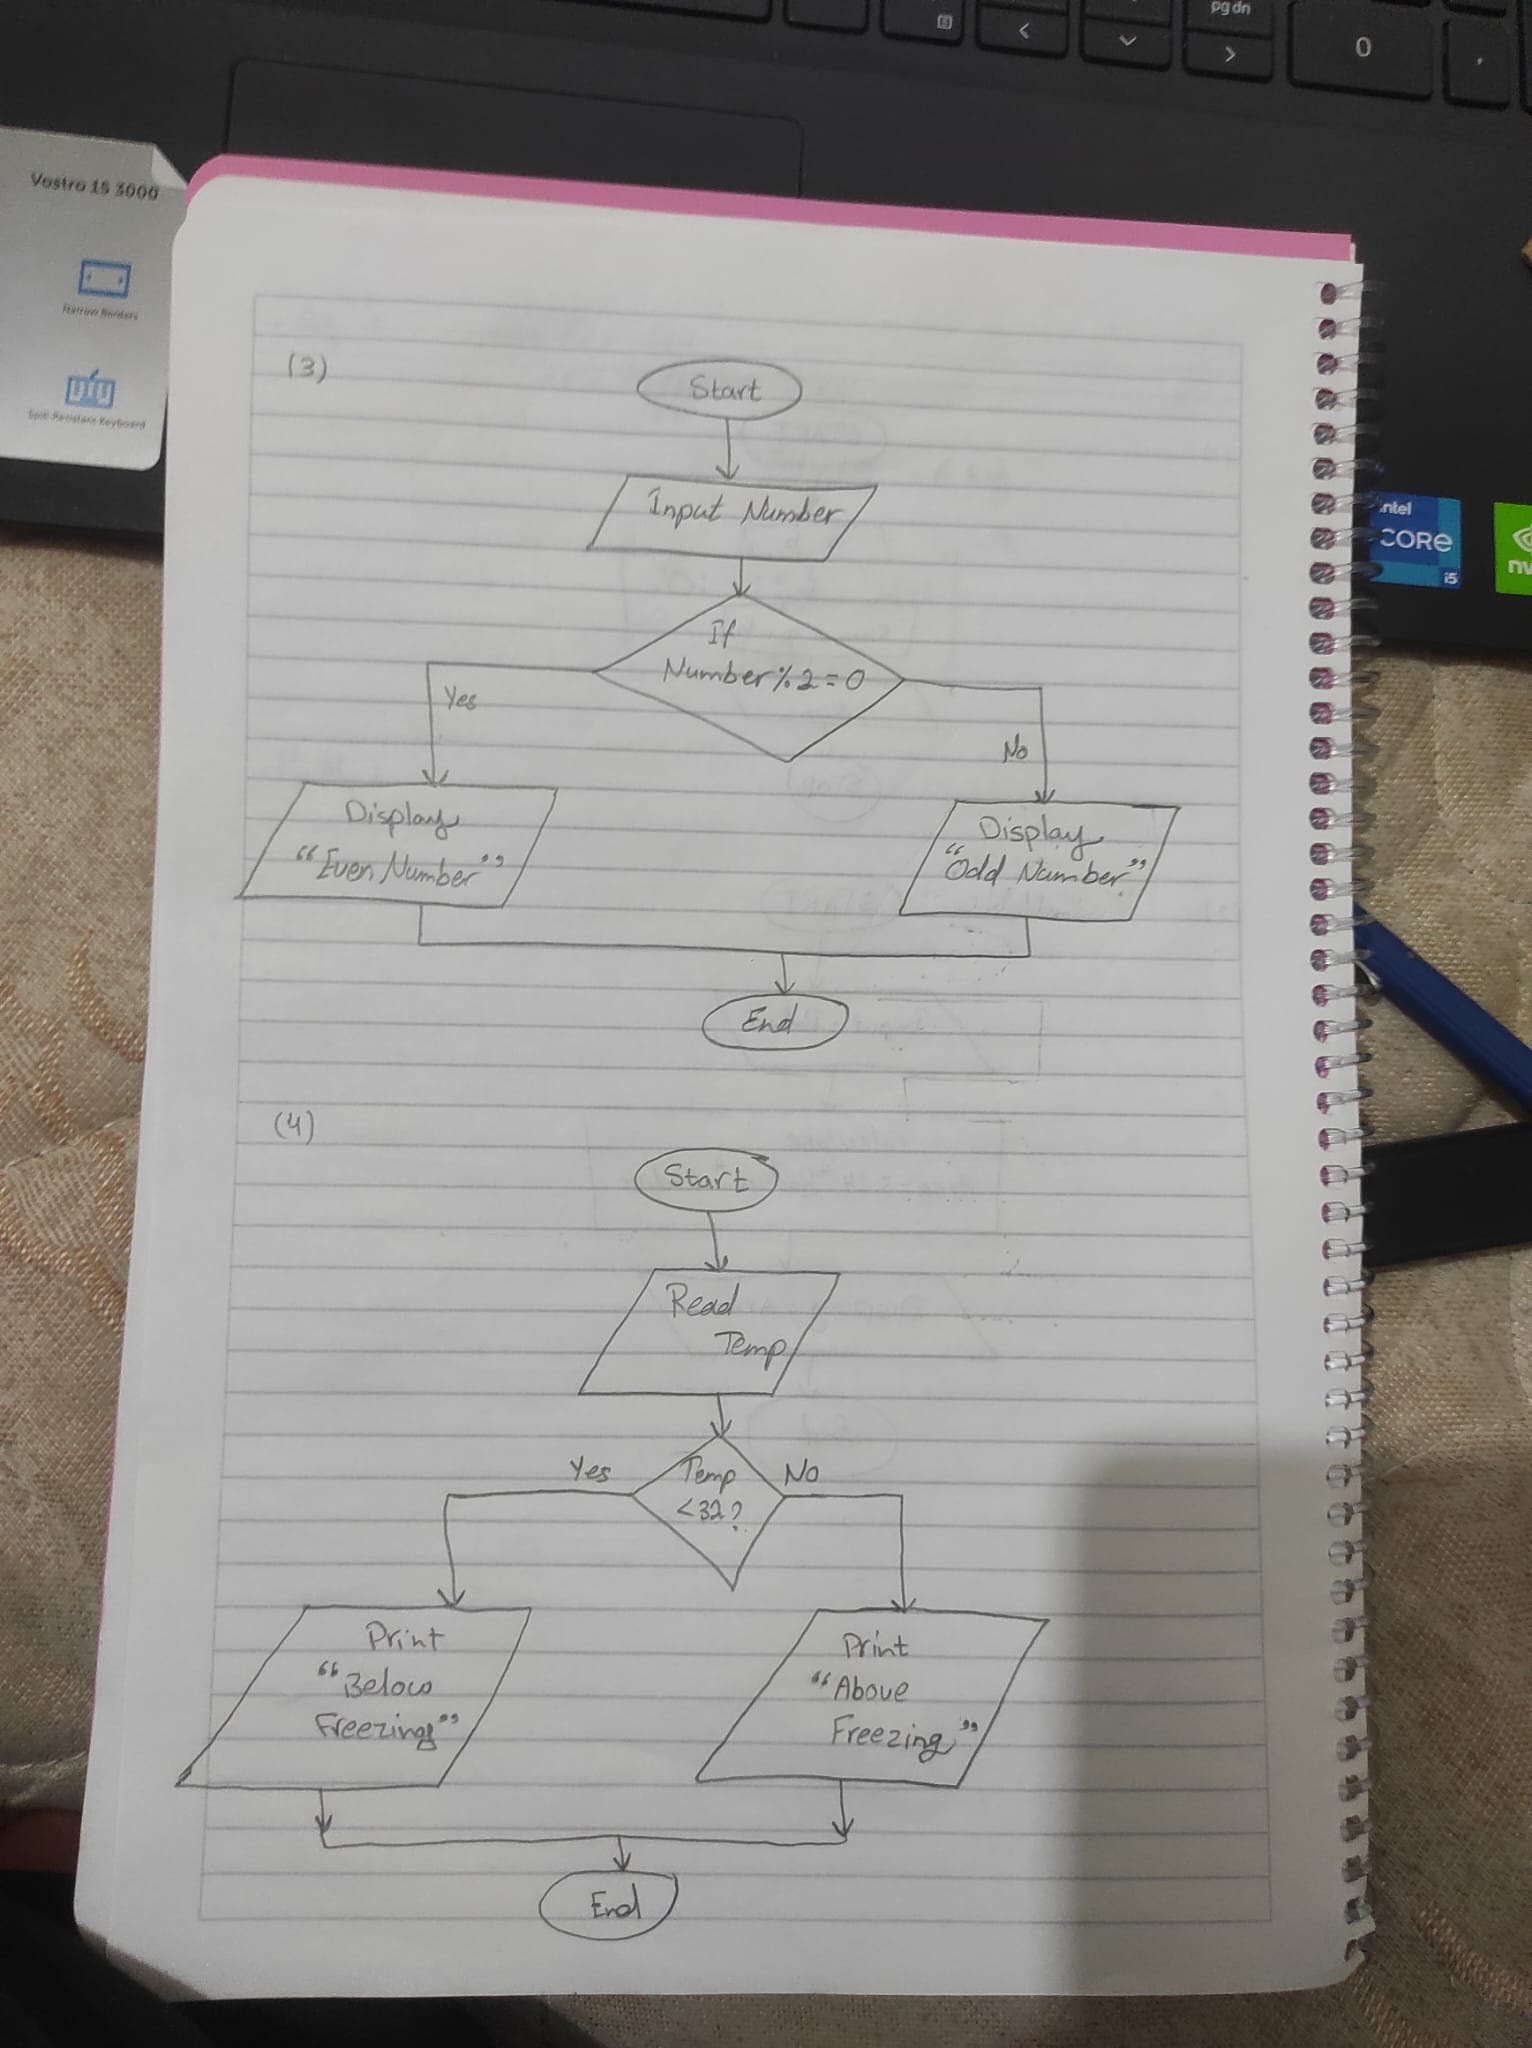 pg dn
<
>
0
,
Vostro 15 3000
Narrow Borders
Spill-Resistant Keyboard
intel
CORe
i5
(3)
Start
Input Number
If
Number%2=0
Yes
No
Display
“Even Number”
Display
“Odd Number”
End
(4)
Start
Read
Temp
Yes
Temp
<32?
No
Print
“Below
Freezing”
Print
“Above
Freezing”
End